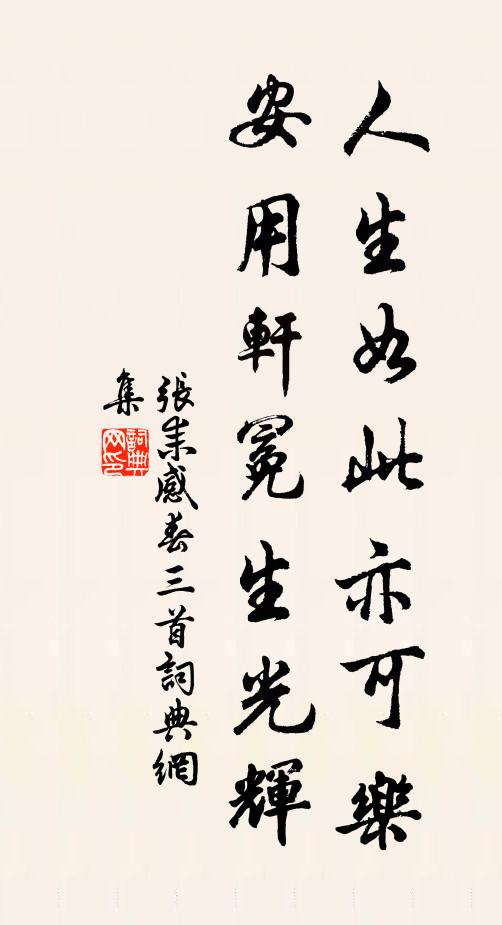 人生如此亦可樂
安用軒冕生光輝
張耒感春三首詞典網
集
詞典網印